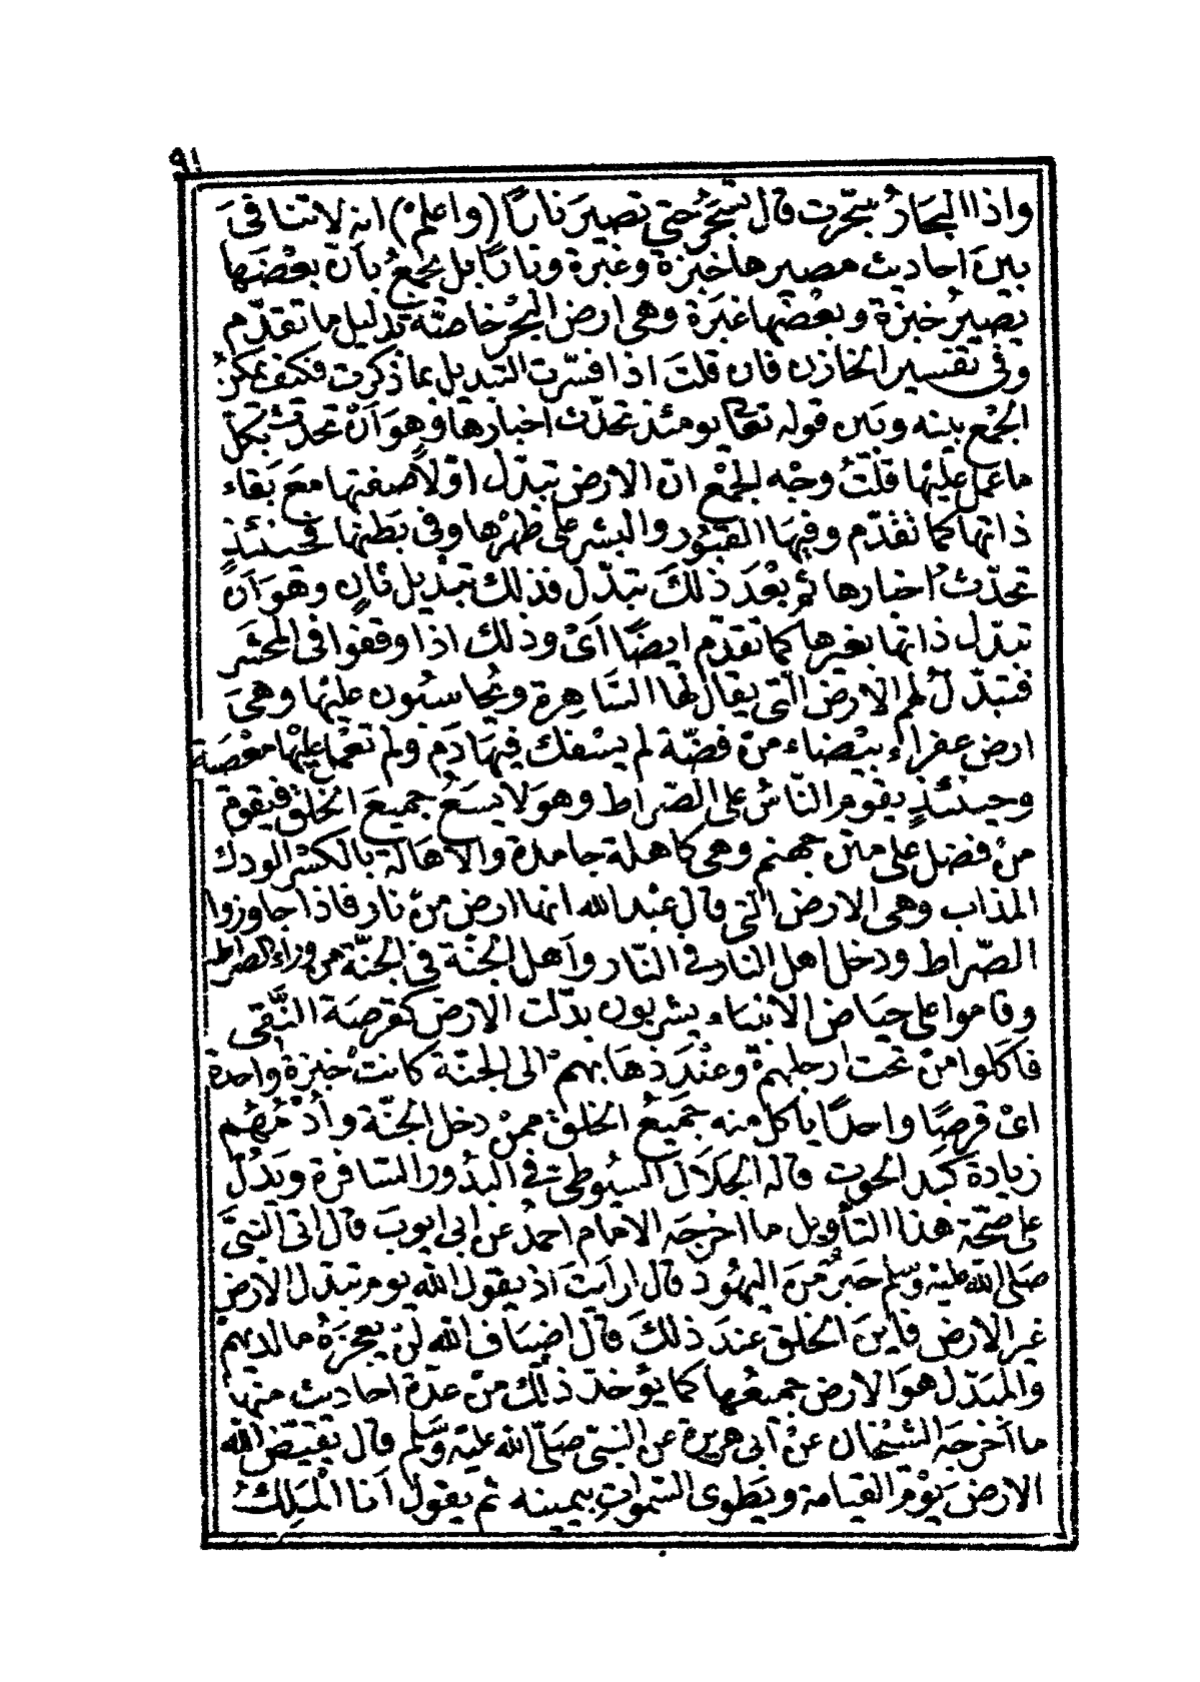 ٩١
واذا البحَارُ سجّرت قال تسْجَرُ حتى تصيرَ نارًا (واعلم) انه لا تنافىَ
بينَ احاديث مصيرها خبزة وغبرة ونارًا بل يجمعُ بأن بعْضَها
يصيرُ خبزة وبعْضها غبَرة وهى ارض البحْر خاصّة بدليل ما تقدّم
وفى تفسير الخازن فان قلتَ اذا فسّرت التبديل بما ذكرت فكيف يمكنُ
الجمْع بينه وبَين قوله تعالى يومئذ تحدّث اخبارها وهوَ أنْ تحدّث بكلّ
ما عمل عليْها قلتُ وجْه الجمْع انّ الارض تبدّل اوّلًا صفتها معَ بَقاء
ذاتها كما تقدّم وفيهَا القبُور والبشر على ظهْرها وفى بَطنها فحينئذٍ
تحدّثُ اخبارها ثم بعْدَ ذلكَ تبدّل فذلك تبْديل ثانٍ وهوَ أنْ
تبدّل ذاتها بغيرها كما تقدّم ايضًا أىْ وذلك اذا وقفوا فى المحْشَر
فتبدّلُ لهم الارض التى يقال لهَا السّاهِرة ويُحاسبُون عليْها وهىَ
ارض عفراء بيْضاء منْ فضّة لم يسْفك فيهَا دَم ولم تعْمل عليْها معْصيَة
وحينئذٍ يقوم النّاسُ على الصّراط وهوَ لا يسَعُ جميعَ الخلق فيقوم
منْ فضل على متن جهنم وهى كاهالة جامدة والاهالة بالكسْر الودك
المذاب وهى الارض التى قال عبْد الله انها ارض منْ نار فاذا جاوزوا
الصّراط ودخل اهل النار فى النّار وأهل الجنّة فى الجنّة من وراء الصراط
وقاموا على حيَاض الانبيَاء يشربون بدّلت الارض كقرصَة النّقى
فأكلوا منْ تحت ارجلهمْ وعنْدَ ذهَابهمْ الى الجنّة كانتْ خبزة واحدة
اىْ قرصًا واحدًا يأكل منه جَميعُ الخلق ممنْ دخل الجنّة وأدْمُهُم
زيادة كَبد الحوت قاله الجَلَالُ السيُوطى فى البدُور السّافرة ويَدُلّ
على صحّة هذا التأويل ما اخرجَه الامام احمدُ عن ابى ايوبَ قال اتى النبىَّ
صَلى الله عليْه وسلم حَبرُ منَ اليهُود قال ارأيتَ اذ يقول الله يوم تبدل الارض
غير الارض فأينَ الخلق عندَ ذلكَ قال اضيَاف الله لنْ يعجزَهُ ما لديهمْ
والمبَدّل هوَ الارض جميعُها كما يؤخذ ذلك منْ عدّة احاديث منها
ما أخرجَه الشيْخان عنْ ابى هريرة عن النبىّ صَلّى الله عليْه وسَلم قال يقبضُ الله
الارضَ يوْم القيامة ويَطوى السّموات بيمينه ثم يقولُ أنا الْمَلِكُ